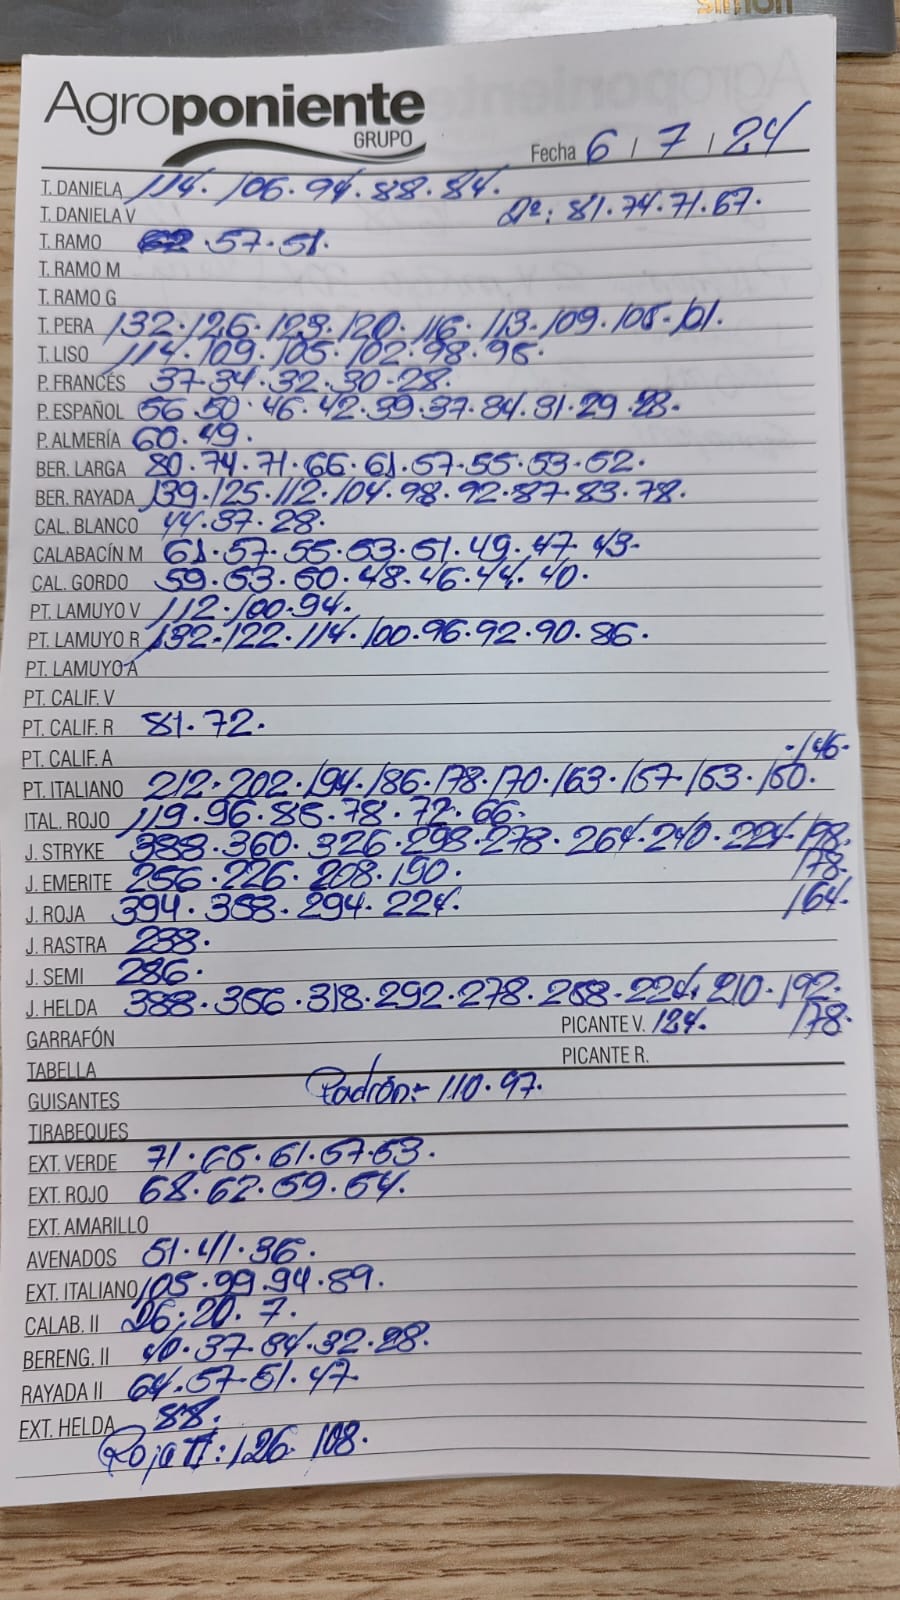 simon
Agroponiente
GRUPO
Fecha 6 / 7 / 24
T. DANIELA 114. 106. 94. 88. 84.
T. DANELA V 2ª: 81.74.71.67.
T. RAMO 62. 57. 51.
T. RAMO M
T. RAMO G
T. PERA 132. 126. 123. 120. 116. 113. 109. 105. 101.
T. LISO 114. 109. 105. 102. 98. 95.
P. FRANCÉS 37. 34. 32. 30. 28.
P. ESPAÑOL 56. 50. 46. 42. 39. 37. 34. 31. 29. 28.
P. ALMERÍA 60. 49.
BER. LARGA 80. 74. 71. 66. 61. 57. 55. 53. 52.
BER. RAYADA 139. 125. 112. 104. 98. 92. 87. 83. 78.
CAL. BLANCO 44. 37. 28.
CALABACÍN M 61. 57. 55. 53. 51. 49. 47. 43.
CAL. GORDO 59. 53. 50. 48. 46. 44. 40.
PT. LAMUYO V 112. 100. 94.
PT. LAMUYO R 132. 122. 114. 100. 96. 92. 90. 86.
PT. LAMUYO A
PT. CALIF. V
PT. CALIF. R 81. 72.
PT. CALIF. A . 146.
PT. ITALIANO 212. 202. 194. 186. 178. 170. 163. 157. 153. 150.
ITAL. ROJO 119. 96. 85. 78. 72. 66.
J. STRYKE 388. 360. 326. 298. 278. 264. 240. 224. 198.
J. EMERITE 256. 226. 208. 190. 178.
J. ROJA 394. 358. 294. 224. 164.
J. RASTRA 238.
J. SEMI 286.
J. HELDA 388. 356. 318. 292. 278. 258. 224. 210. 192.
GARRAFÓN PICANTE V. 124. 178.
TABELLA PICANTE R.
GUISANTES Padrón:- 110. 97.
TIRABEQUES
EXT. VERDE 71. 65. 61. 57. 53.
EXT. ROJO 68. 62. 59. 54.
EXT. AMARILLO
AVENADOS 51. 41. 36.
EXT. ITALIANO 105. 99. 94. 89.
CALAB. II 26. 20. 7.
BERENG. II 40. 37. 34. 32. 28.
RAYADA II 64. 57. 51. 47.
EXT. HELDA 88.
Roja II: 126. 108.